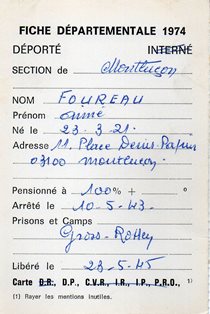 FICHE DÉPARTEMENTALE 1974
DÉPORTÉ INTERNÉ
SECTION de Montluçon
NOM FOUREAU
Prénom Aimé
Né le 23.3.21.
Adresse 11. Place Denis-Papin
03100 Montluçon
Pensionné à 100% + °
Arrêté le 10-5-43.
Prisons et Camps
Gross-Rosen
Libéré le 23-5-45
Carte D.R., D.P., C.V.R., I.R., I.P., P.R.O., 1)
(1) Rayer les mentions inutiles.